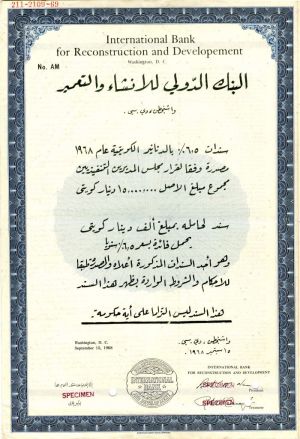 211-2109-69
International Bank
for Reconstruction and Developement
Washington, D. C.
No. AM
البنك الدولي للإنشاء والتعمير
واشنطن، دي. سي.
سندات ٦٫٥٪ بالدنانير الكويتية عام ١٩٦٨
مصدرة وفقا لقرار مجلس المديرين التنفيذيين
مجموع مبلغ الأصل ١٥٠٠٠٠٠٠ دينار كويتي
سند لحامله بمبلغ ألف دينار كويتي
يحمل فائدة بسعر ٦٫٥٪ سنويا
وهو أحد السندات المذكورة أعلاه والمصدرة طبقا
للأحكام والشروط الواردة بظهر هذا السند
هذا السند ليس التزاما على أية حكومة.
Washington, D. C.
September 15, 1968
واشنطن، دي. سي.
١٥ سبتمبر ١٩٦٨
INTERNATIONAL BANK
FOR RECONSTRUCTION AND DEVELOPMENT
INTERNATIONAL BANK
SPECIMEN
SPECIMEN
President
SPECIMEN
Treasurer